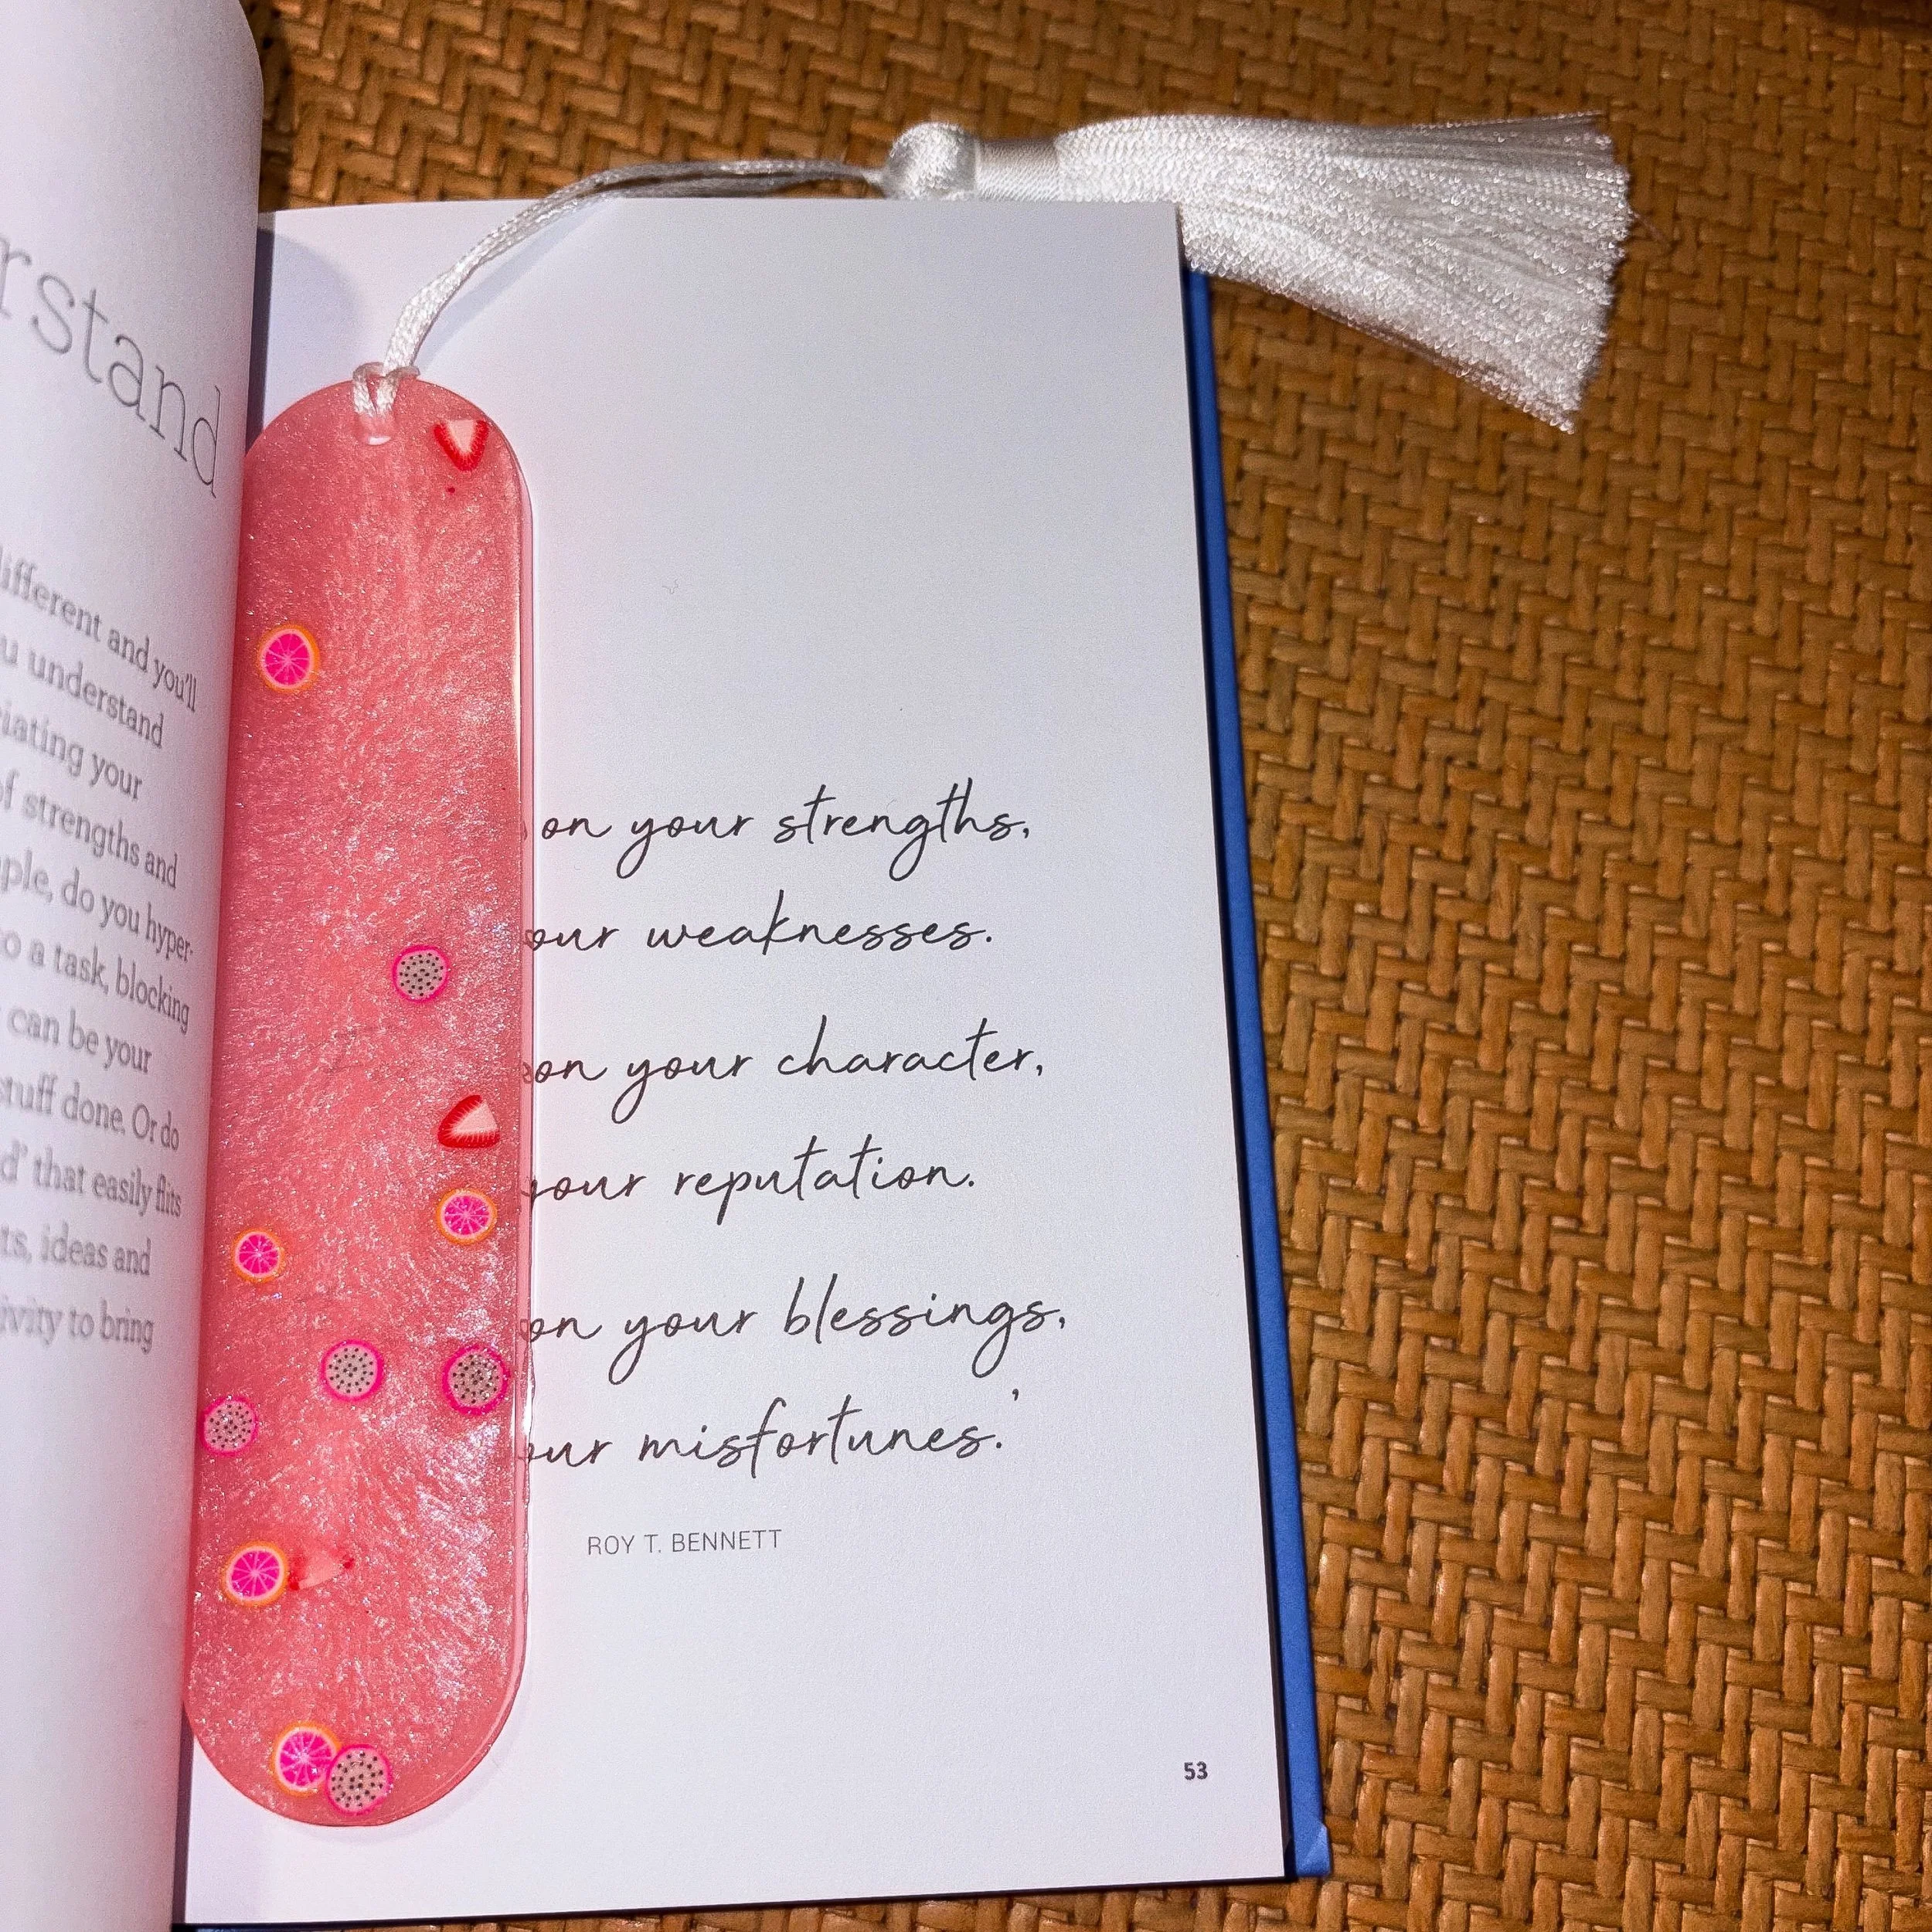 rstand
different and you'll
u understand
ciating your
of strengths and
ple, do you hyper-
to a task, blocking
can be your
stuff done. Or do
d' that easily flits
ts, ideas and
ivity to bring
on your strengths,
our weaknesses.
on your character,
your reputation.
on your blessings,
our misfortunes.'
ROY T. BENNETT
53